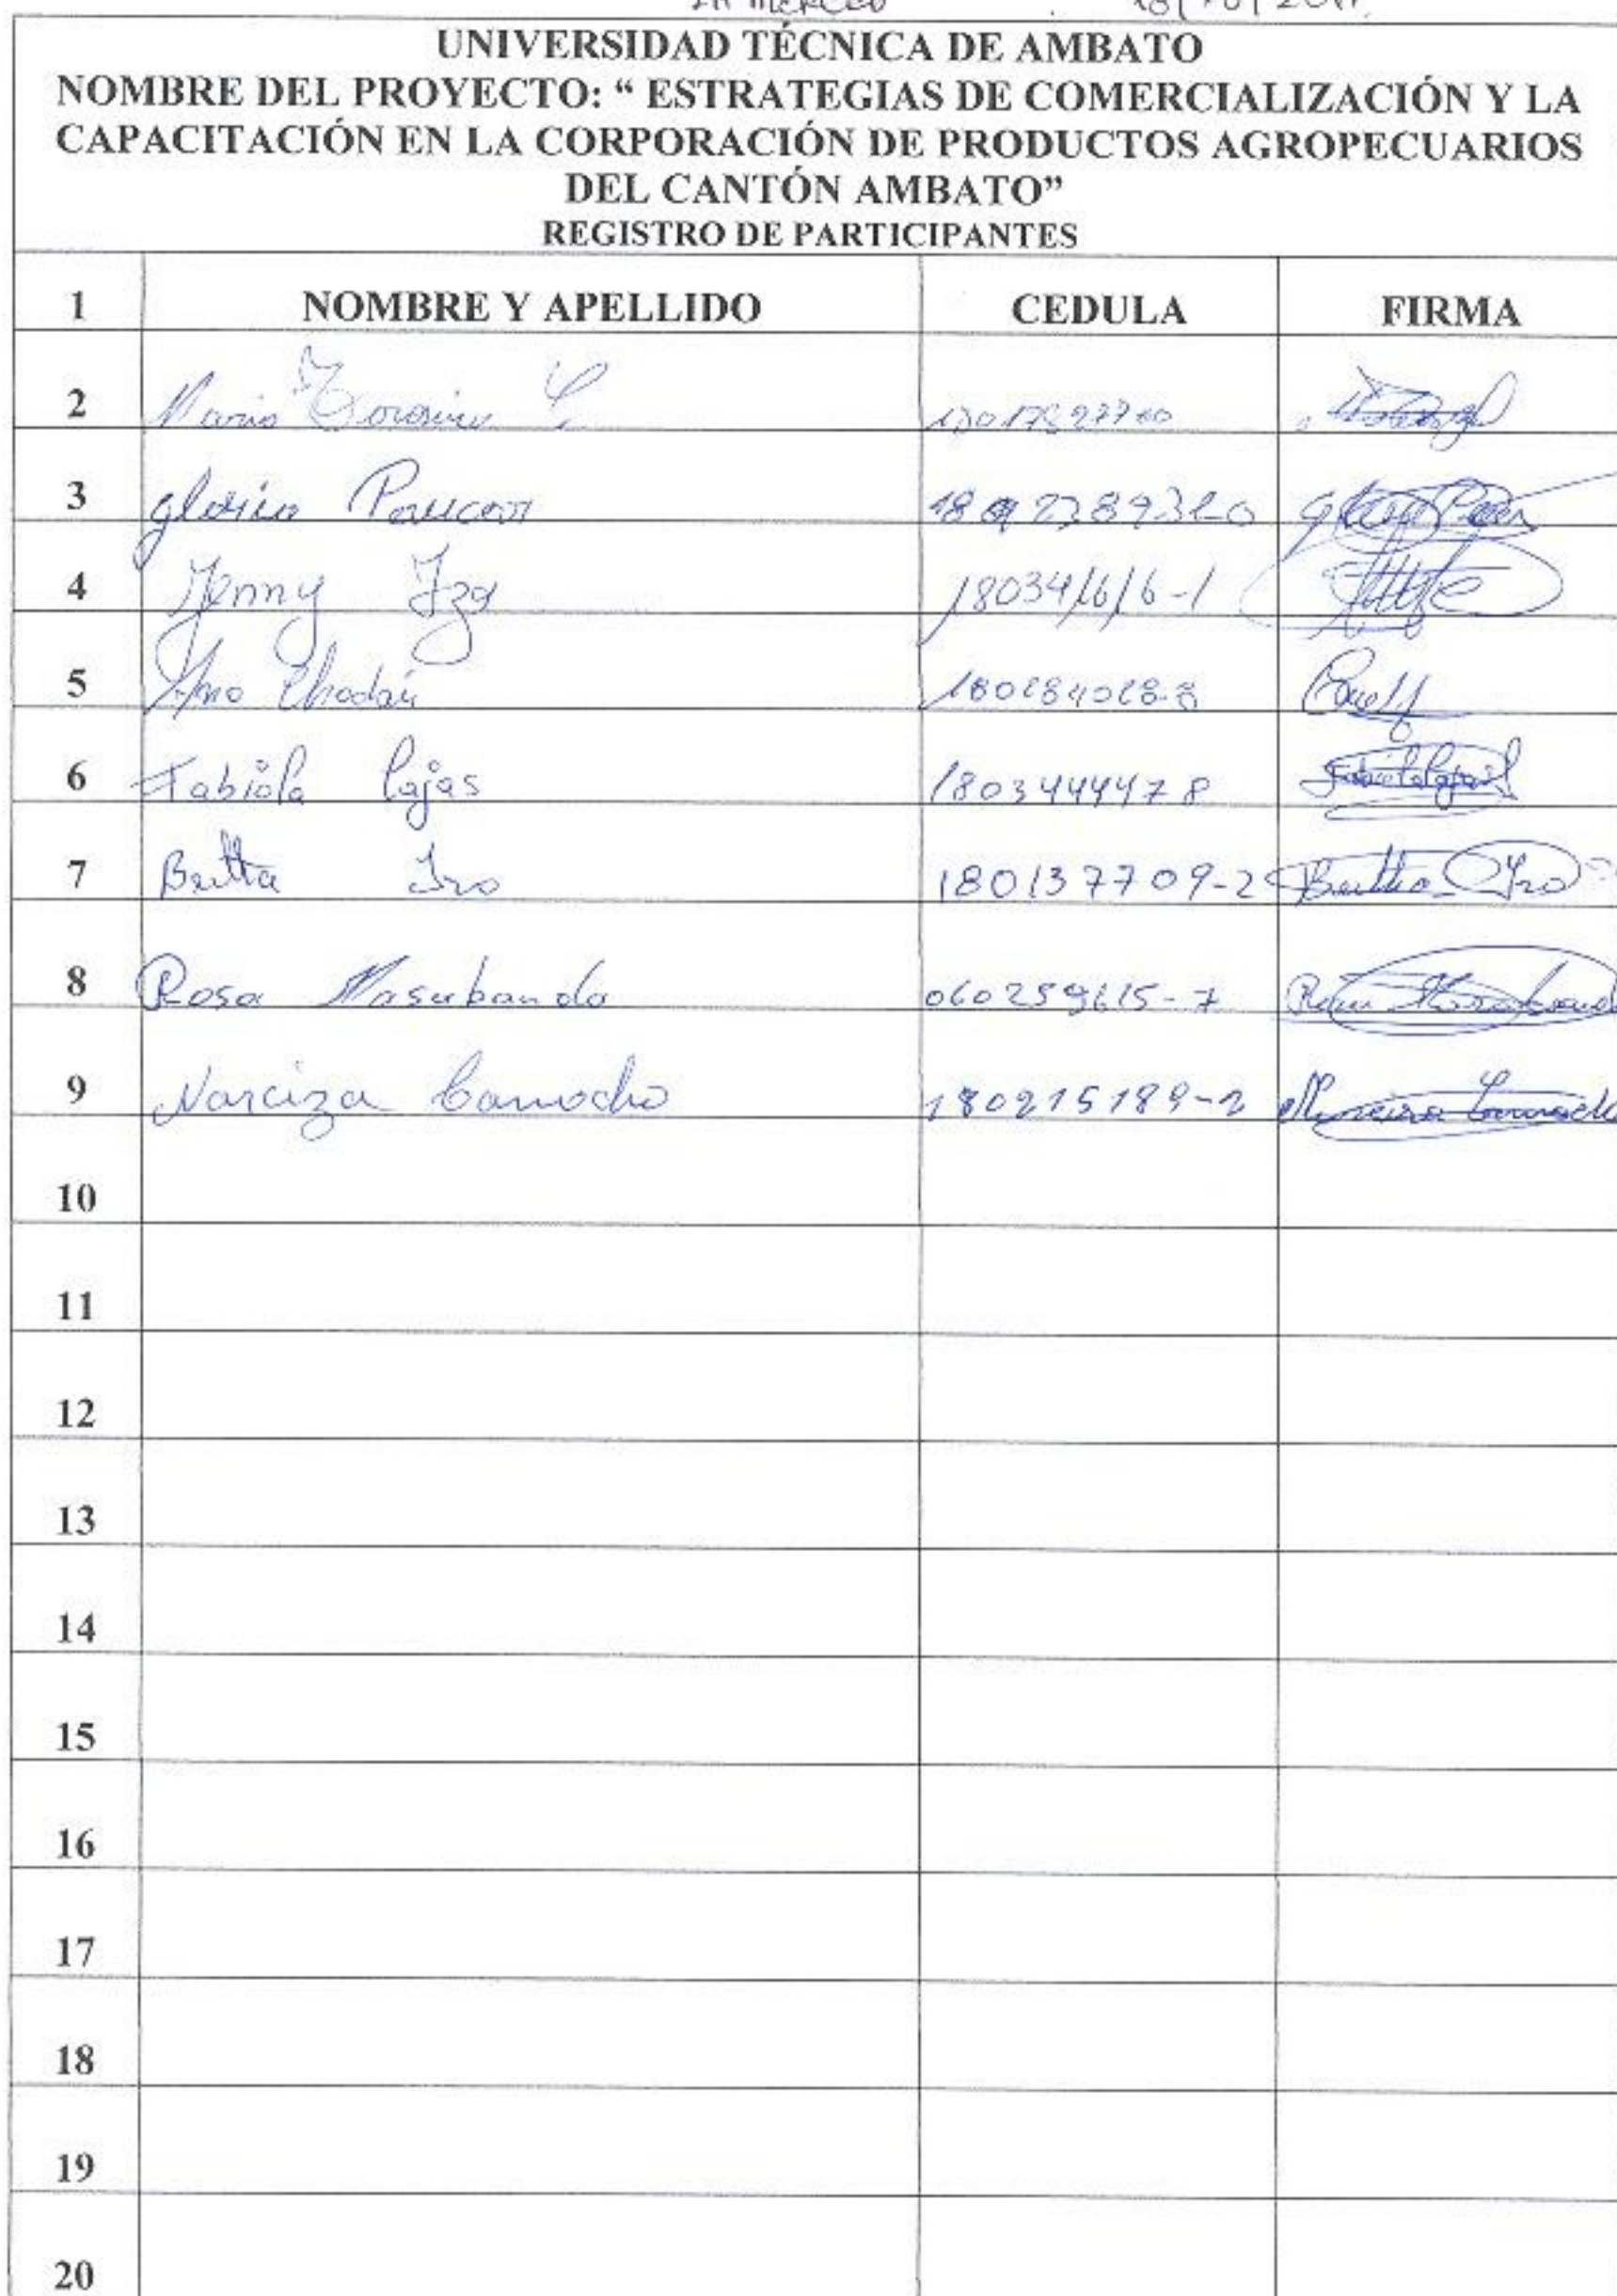 LA MERCED
UNIVERSIDAD TÉCNICA DE AMBATO
NOMBRE DEL PROYECTO: “ ESTRATEGIAS DE COMERCIALIZACIÓN Y LA
CAPACITACIÓN EN LA CORPORACIÓN DE PRODUCTOS AGROPECUARIOS
DEL CANTÓN AMBATO”
REGISTRO DE PARTICIPANTES
1 NOMBRE Y APELLIDO CEDULA FIRMA
2
3 gloria Paucar
4 Jenny Iza 180341616-1
5
6 Fabiola Cajas 1803444478 Fabiola Cajas
7 Bertha 180137709-2 Bertha
8 Rosa Masabanda 060259615-7 Rosa Masabanda
9 Narciza Camacho 180215189-2 Narciza Camacho
10
11
12
13
14
15
16
17
18
19
20